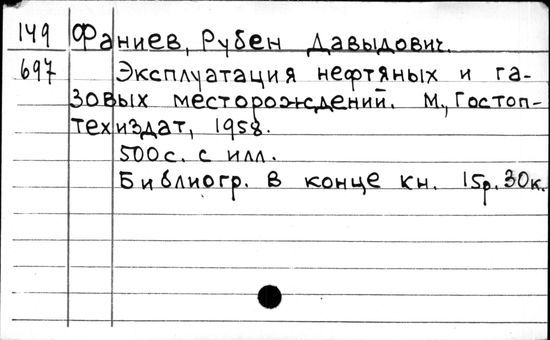 149 Фаниев, Рубен Давыдович.
697 Эксплуатация нефтяных и га-
зовых месторождений. М., Гостоп-
техиздат, 1958.
500с. с илл.
Библиогр. в конце кн. 15р.30к.